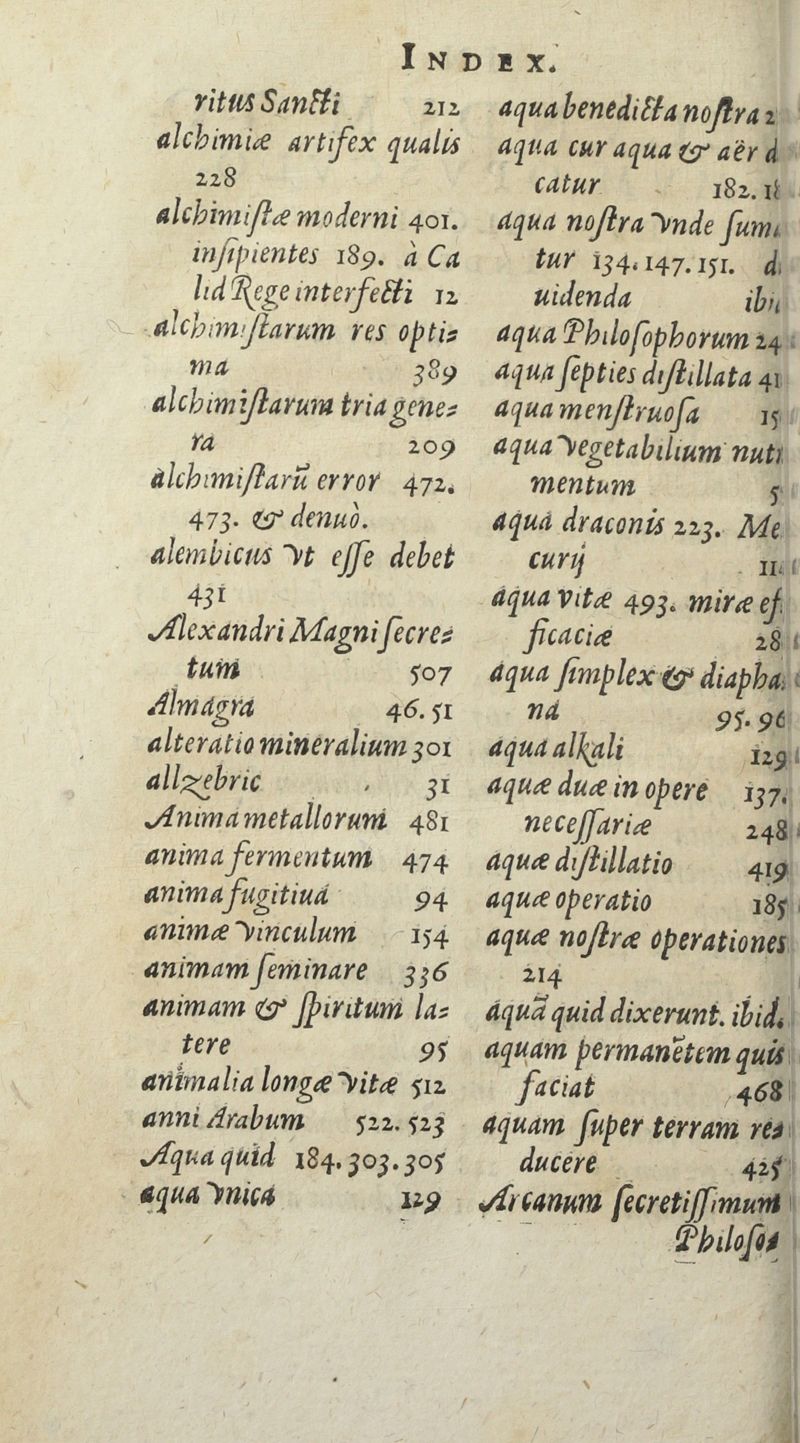 INDEX.
ritus Sancti 212
alchimiæ artifex qualis
228
alchimiſtæ moderni 401.
inſipientes 189. à Ca
lid Rege interfecti 12
alchimiſtarum res optis
ma 389
alchimiſtarum tria genes
ra 209
alchimiſtarũ error 472.
473. & denuò.
alembicus vt eſſe debet
431
Alexandri Magni ſecres
tum 507
Almagra 46. 51
alteratio mineralium 301
allzebric 31
Anima metallorum 481
anima fermentum 474
anima fugitiua 94
animæ vinculum 154
animam ſeminare 336
animam & ſpiritum las
tere 95
animalia longæ vitæ 512
anni Arabum 522. 523
Aqua quid 184. 303. 305
aqua vnica 129
aqua benedicta noſtra 2
aqua cur aqua & aër d
catur 182. 18
aqua noſtra vnde ſum
tur 134. 147. 151. d
uidenda ibi
aqua Philoſophorum 24
aqua ſepties diſtillata 41
aqua menſtruoſa 15
aqua vegetabilium nutr
mentum 5
aqua draconis 223. Me
curij 11
aqua vitæ 493. miræ ef
ficaciæ 28
aqua ſimplex & diapha
na 95. 96
aqua alkali 129
aquæ duæ in opere 137.
neceſſariæ 248
aquæ diſtillatio 419
aquæ operatio 185
aquæ noſtræ operationes
214
aquã quid dixerunt. ibid.
aquam permanẽtem quis
faciat 468
aquam ſuper terram res
ducere 425
Arcanum ſecretiſſimum
Philoſos